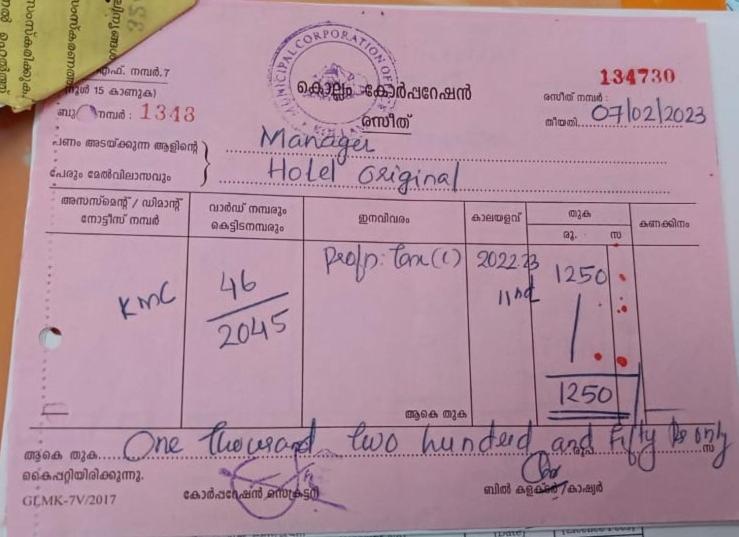 എഫ്. നമ്പർ.7
(റൂൾ 15 കാണുക)
ബു നമ്പർ : 1343
MUNICIPAL CORPORATION OF
കൊല്ലം കോർപ്പറേഷൻ
രസീത്
134730
രസീത് നമ്പർ :
തീയതി 07/02/2023
പണം അടയ്ക്കുന്ന ആളിന്റെ Manager
പേരും മേൽവിലാസവും Hotel Original
അസസ്മെന്റ് / ഡിമാന്റ് നോട്ടീസ് നമ്പർ
വാർഡ് നമ്പരും കെട്ടിടനമ്പരും
ഇനവിവരം
കാലയളവ്
തുക
രൂ. സ
കണക്കിനം
KMC 46/2045 Profn: Tax (C) 2022 23 IInd 1250
ആകെ തുക 1250
ആകെ തുക One thousand two hundred and fifty Rs only
കൈപ്പറ്റിയിരിക്കുന്നു.
GLMK-7V/2017
കോർപ്പറേഷൻ സെക്രട്ടറി
ബിൽ കളക്ടർ/കാഷ്യർ